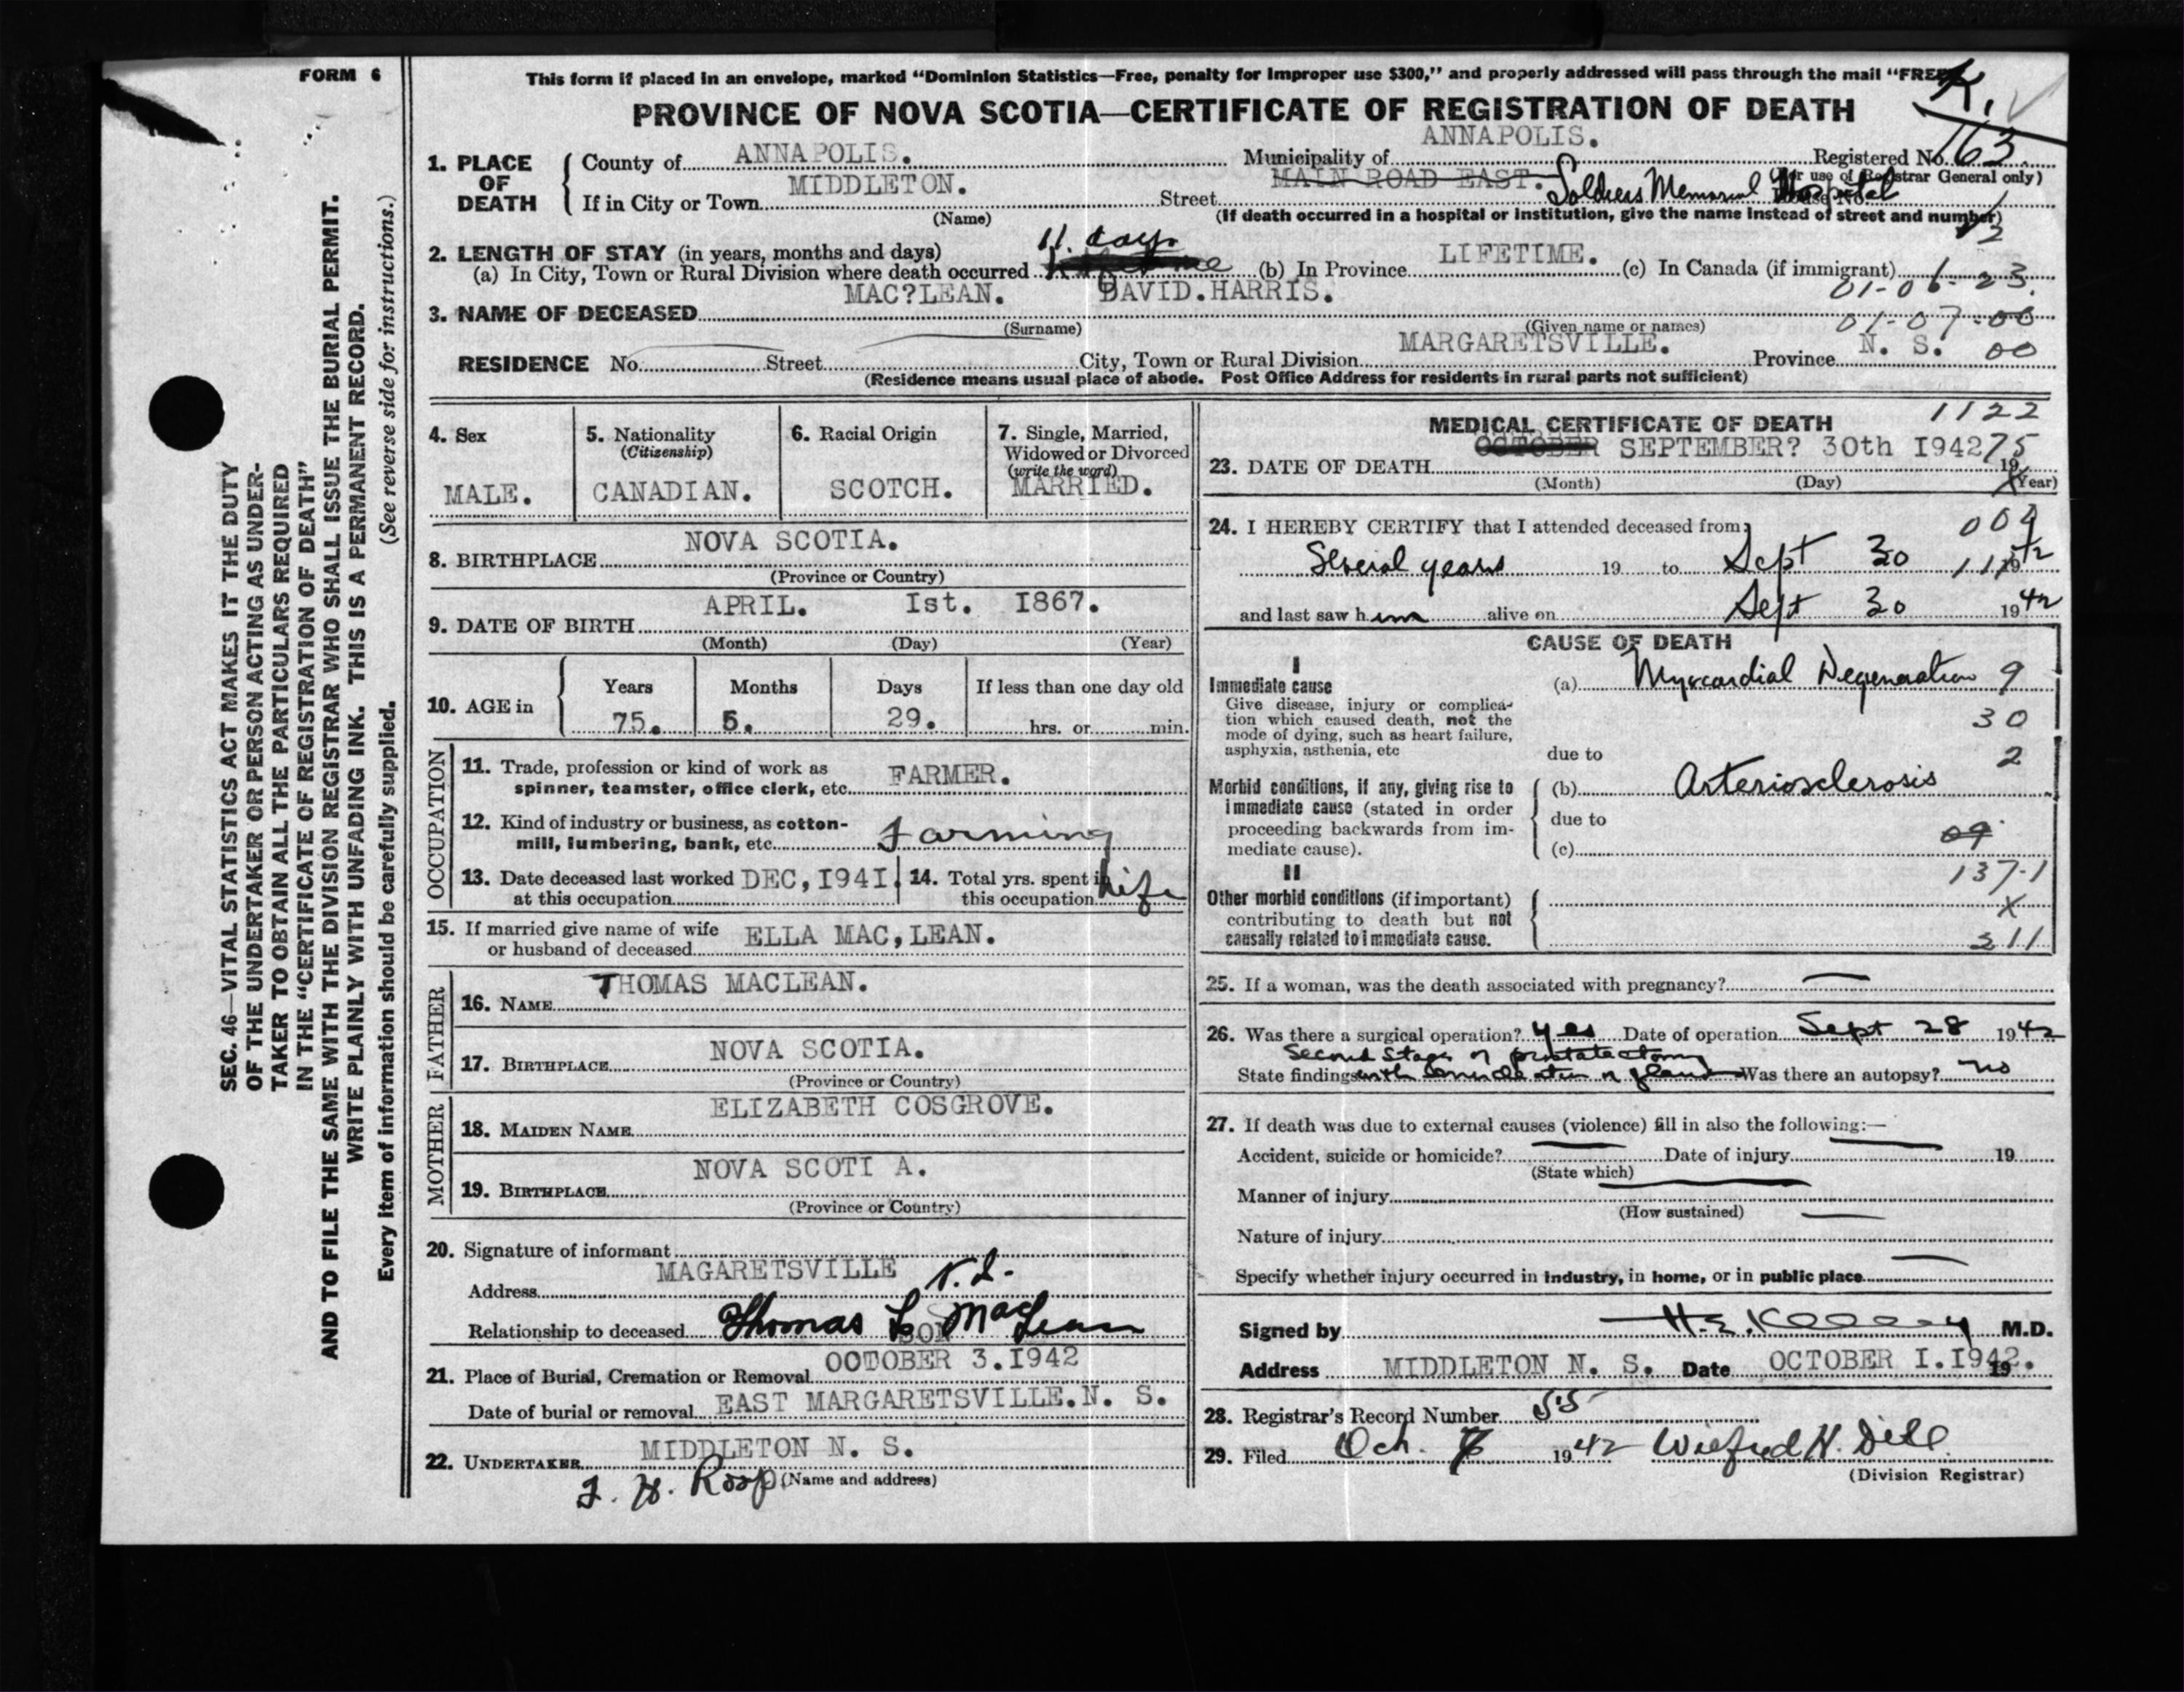 FORM 6
This form if placed in an envelope, marked “Dominion Statistics—Free, penalty for improper use $300,” and properly addressed will pass through the mail “FREE”
K.
PROVINCE OF NOVA SCOTIA—CERTIFICATE OF REGISTRATION OF DEATH
1. PLACE OF DEATH County of ANNAPOLIS. Municipality of ANNAPOLIS. Registered No. 163
(For use of Registrar General only)
If in City or Town MIDDLETON. Street MAIN ROAD EAST. Soldiers Memorial Hospital
(Name) (If death occurred in a hospital or institution, give the name instead of street and number)
2. LENGTH OF STAY (in years, months and days) 11. days
(a) In City, Town or Rural Division where death occurred (b) In Province LIFETIME. (c) In Canada (if immigrant)
01-06-23.
3. NAME OF DECEASED MAC?LEAN. DAVID.HARRIS.
(Surname) (Given name or names) 01-07-00
RESIDENCE No. Street City, Town or Rural Division MARGARETSVILLE. Province N. S. 00
(Residence means usual place of abode. Post Office Address for residents in rural parts not sufficient)
4. Sex 5. Nationality (Citizenship) 6. Racial Origin 7. Single, Married, Widowed or Divorced (write the word)
MALE. CANADIAN. SCOTCH. MARRIED.
8. BIRTHPLACE NOVA SCOTIA.
(Province or Country)
9. DATE OF BIRTH APRIL. Ist. I867.
(Month) (Day) (Year)
10. AGE in Years Months Days If less than one day old
75. 5. 29. hrs. or min.
OCCUPATION
11. Trade, profession or kind of work as spinner, teamster, office clerk, etc. FARMER.
12. Kind of industry or business, as cotton-mill, lumbering, bank, etc. Farming
13. Date deceased last worked at this occupation DEC, I94I. 14. Total yrs. spent in this occupation Life
15. If married give name of wife or husband of deceased ELLA MAC,LEAN.
FATHER
16. NAME THOMAS MACLEAN.
17. BIRTHPLACE NOVA SCOTIA.
(Province or Country)
MOTHER
18. MAIDEN NAME ELIZABETH COSGROVE.
19. BIRTHPLACE NOVA SCOTI A.
(Province or Country)
20. Signature of informant
Address MAGARETSVILLE N.S.
Relationship to deceased Thomas L MacLean SON
21. Place of Burial, Cremation or Removal OCTOBER 3.I942
Date of burial or removal EAST MARGARETSVILLE.N. S.
22. UNDERTAKER MIDDLETON N. S.
(Name and address)
Roop
1122
MEDICAL CERTIFICATE OF DEATH
23. DATE OF DEATH OCTOBER SEPTEMBER? 30th I942 75 19
(Month) (Day) (Year)
24. I HEREBY CERTIFY that I attended deceased from
Several years 19 to Sept 30 1942
and last saw him alive on Sept 30 1942
CAUSE OF DEATH
I
Immediate cause (a) Myocardial Degeneration 9
Give disease, injury or complication which caused death, not the mode of dying, such as heart failure, asphyxia, asthenia, etc
30
due to 2
Morbid conditions, if any, giving rise to immediate cause (stated in order proceeding backwards from immediate cause).
(b) Arteriosclerosis
due to
09
(c)
137-1
II
Other morbid conditions (if important) contributing to death but not causally related to immediate cause.
X
211
25. If a woman, was the death associated with pregnancy? —
26. Was there a surgical operation? yes Date of operation Sept 28 1942
Second Stage of prostatectomy
State findings with enucleation of gland Was there an autopsy? no
27. If death was due to external causes (violence) fill in also the following:—
Accident, suicide or homicide? Date of injury 19
(State which)
Manner of injury
(How sustained)
Nature of injury
Specify whether injury occurred in industry, in home, or in public place
Signed by M.D.
Address MIDDLETON N. S. Date OCTOBER I.I942. 19
28. Registrar's Record Number 55
29. Filed Oct. 7 1942 Wilfred H. Dill
(Division Registrar)
SEC. 46—VITAL STATISTICS ACT MAKES IT THE DUTY
OF THE UNDERTAKER OR PERSON ACTING AS UNDER-
TAKER TO OBTAIN ALL THE PARTICULARS REQUIRED
IN THE “CERTIFICATE OF REGISTRATION OF DEATH”
AND TO FILE THE SAME WITH THE DIVISION REGISTRAR WHO SHALL ISSUE THE BURIAL PERMIT.
WRITE PLAINLY WITH UNFADING INK. THIS IS A PERMANENT RECORD.
Every item of information should be carefully supplied. (See reverse side for instructions.)